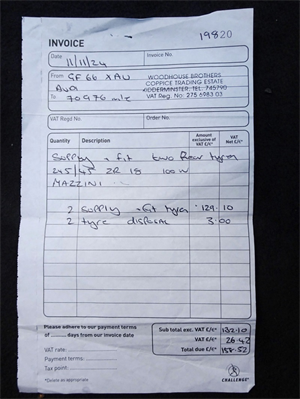 19820
INVOICE
Date 11/11/24 Invoice No.
From GF66 XAU
WOODHOUSE BROTHERS
COPPICE TRADING ESTATE
KIDDERMINSTER. TEL: 745790
VAT Reg. No: 275 6983 03
To 70976 mls
VAT Regd No. Order No.
Quantity Description Amount exclusive of VAT £/€* VAT Net £/€*
Supply + fit two Rear tyres
245/45 ZR 18 100W
MAZZINI
2 Supply + fit tyres 129.10
2 tyre disposal 3.00
Please adhere to our payment terms
of ......... days from our invoice date
Sub total exc. VAT £/€* 132.10
VAT rate: VAT £/€* 26.42
Payment terms: Total due £/€* 158.52
Tax point:
*Delete as appropriate
CHALLENGE